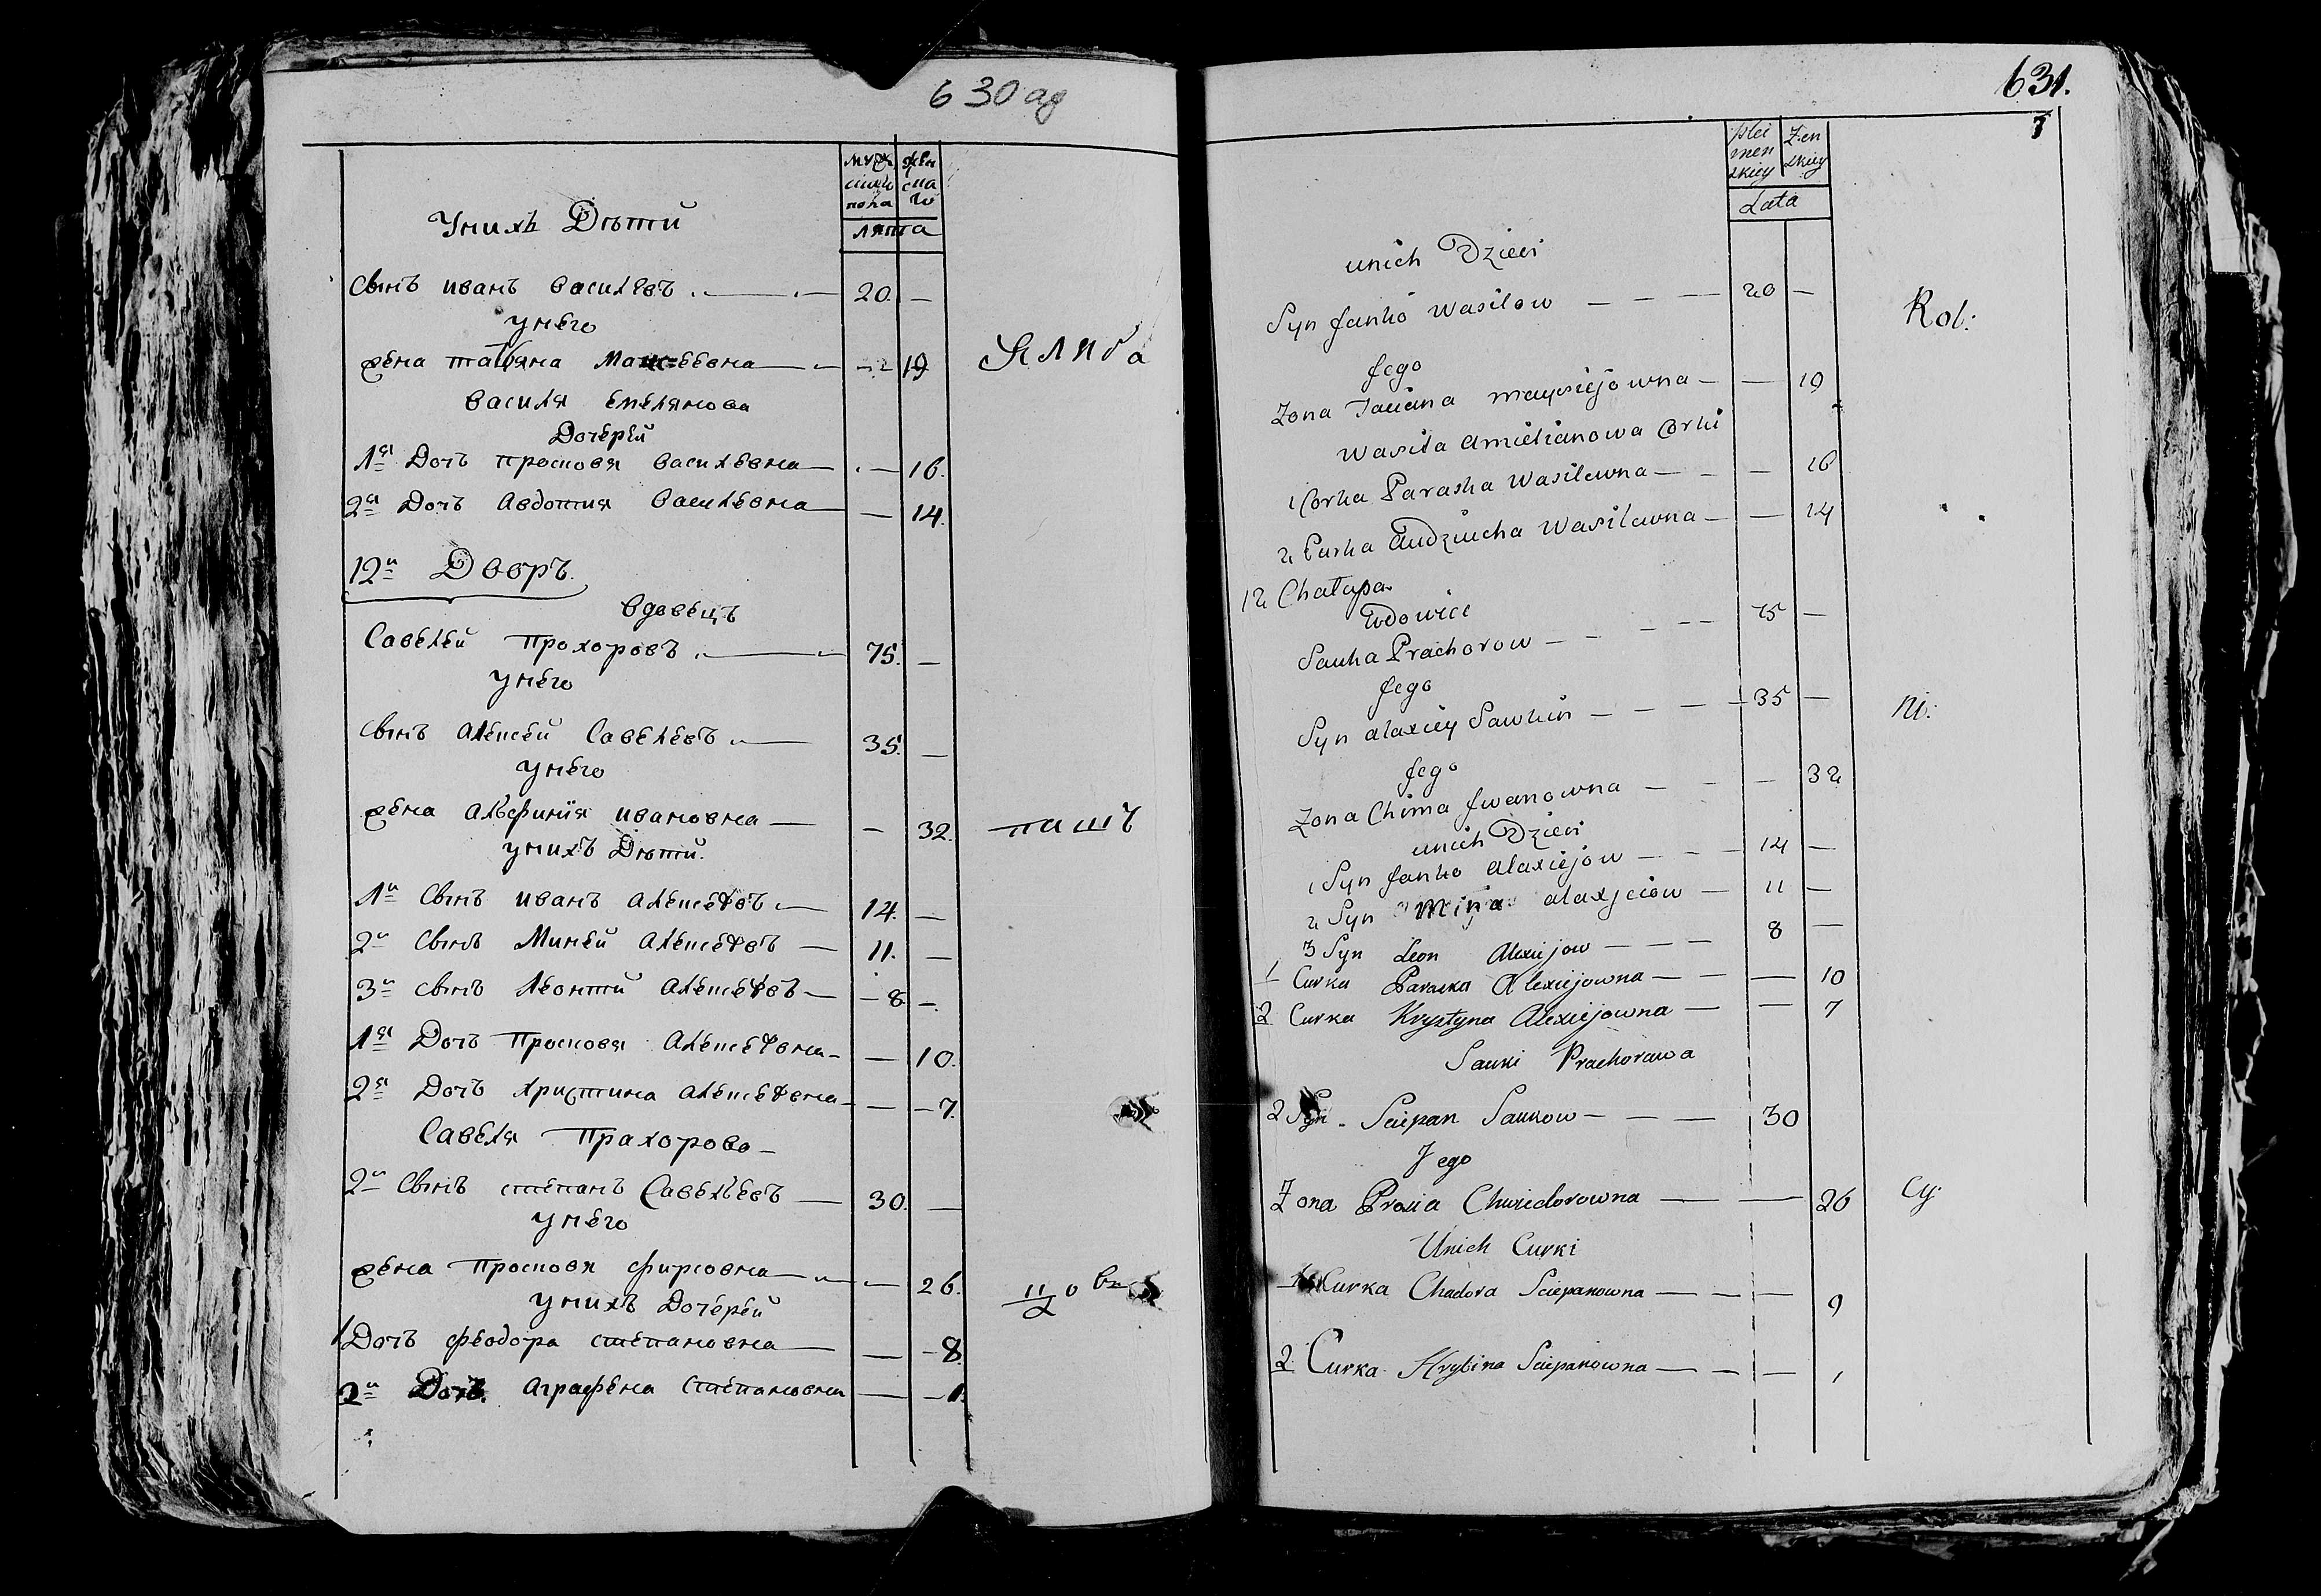 630 аg
мужска пола
женска
лѣта
Унихъ Дѣти
Сынъ иванъ василевъ 20 —
унего
жена татьяна Мо͞исеевна — 19
василя емелянова
Дочерей
1я Дочъ прасковя василевна — 16.
2я Дочъ авдотия василевна — 14.
12й Дворъ.
вдовецъ
Савелей прохоровъ 75. —
унего
сынъ алексей Савелевъ 35. —
унего
жена алѣфинiя ивановна — 32.
унихъ Дѣти.
1й Сынъ иванъ алексеевъ 14. —
2й Сынъ Миней алексеевъ 11. —
3й сынъ леонтий алексеевъ — 8 —.
1я Дочъ прасковя алексеевна — 10.
2я Дочъ христина алексеевна — 7.
Савеля прахорова —
2й Сынъ степанъ Савельевъ 30. —
унего
жена прасковя фирсовна — 26.
унихъ Дочерей
1 Дочъ феодора степановна — 8.
2я Дочъ. аграфена степановна — 1.
631.
Zen skiey
Lata
unich Dzieci
Syn Janko Wasilow — — — 20 —
Jego
Zona Taciana maysiejowna — — 19
Wasila Amielianowa Corki
1 Corka Paraska Wasilewna — — — 16
2 Curka Audziucha Wasilewna — — 14
12 Chałupa
Wdowiec
Sauka Prachorow — — — — 75 —
Jego
Syn alaxiey Sawkin — — — 35 —
Jego
Zona Chima Jwanowna — — — 32
unich Dzieci
1 Syn Janko Alaxiejow — — 14 —
2 Syn Mina alaxjeiow — 11 —
3 Syn Leon Alexiejow — — — 8 —
1 Curka Paraska Alexiejowna — — — 10
2 Curka Krystyna Alexiejowna — — 7
Sauki Prachorawa
2 Syn. Sciepan Saukow — — — 30
Jego
Zona Prosia Chwiedorowna — — 26
Unich Curki
1 Curka Chadora Sciepanowna — — — 9
2 Curka Hrybina Sciepanowna — — — 1
Rol:
ni:
cy.